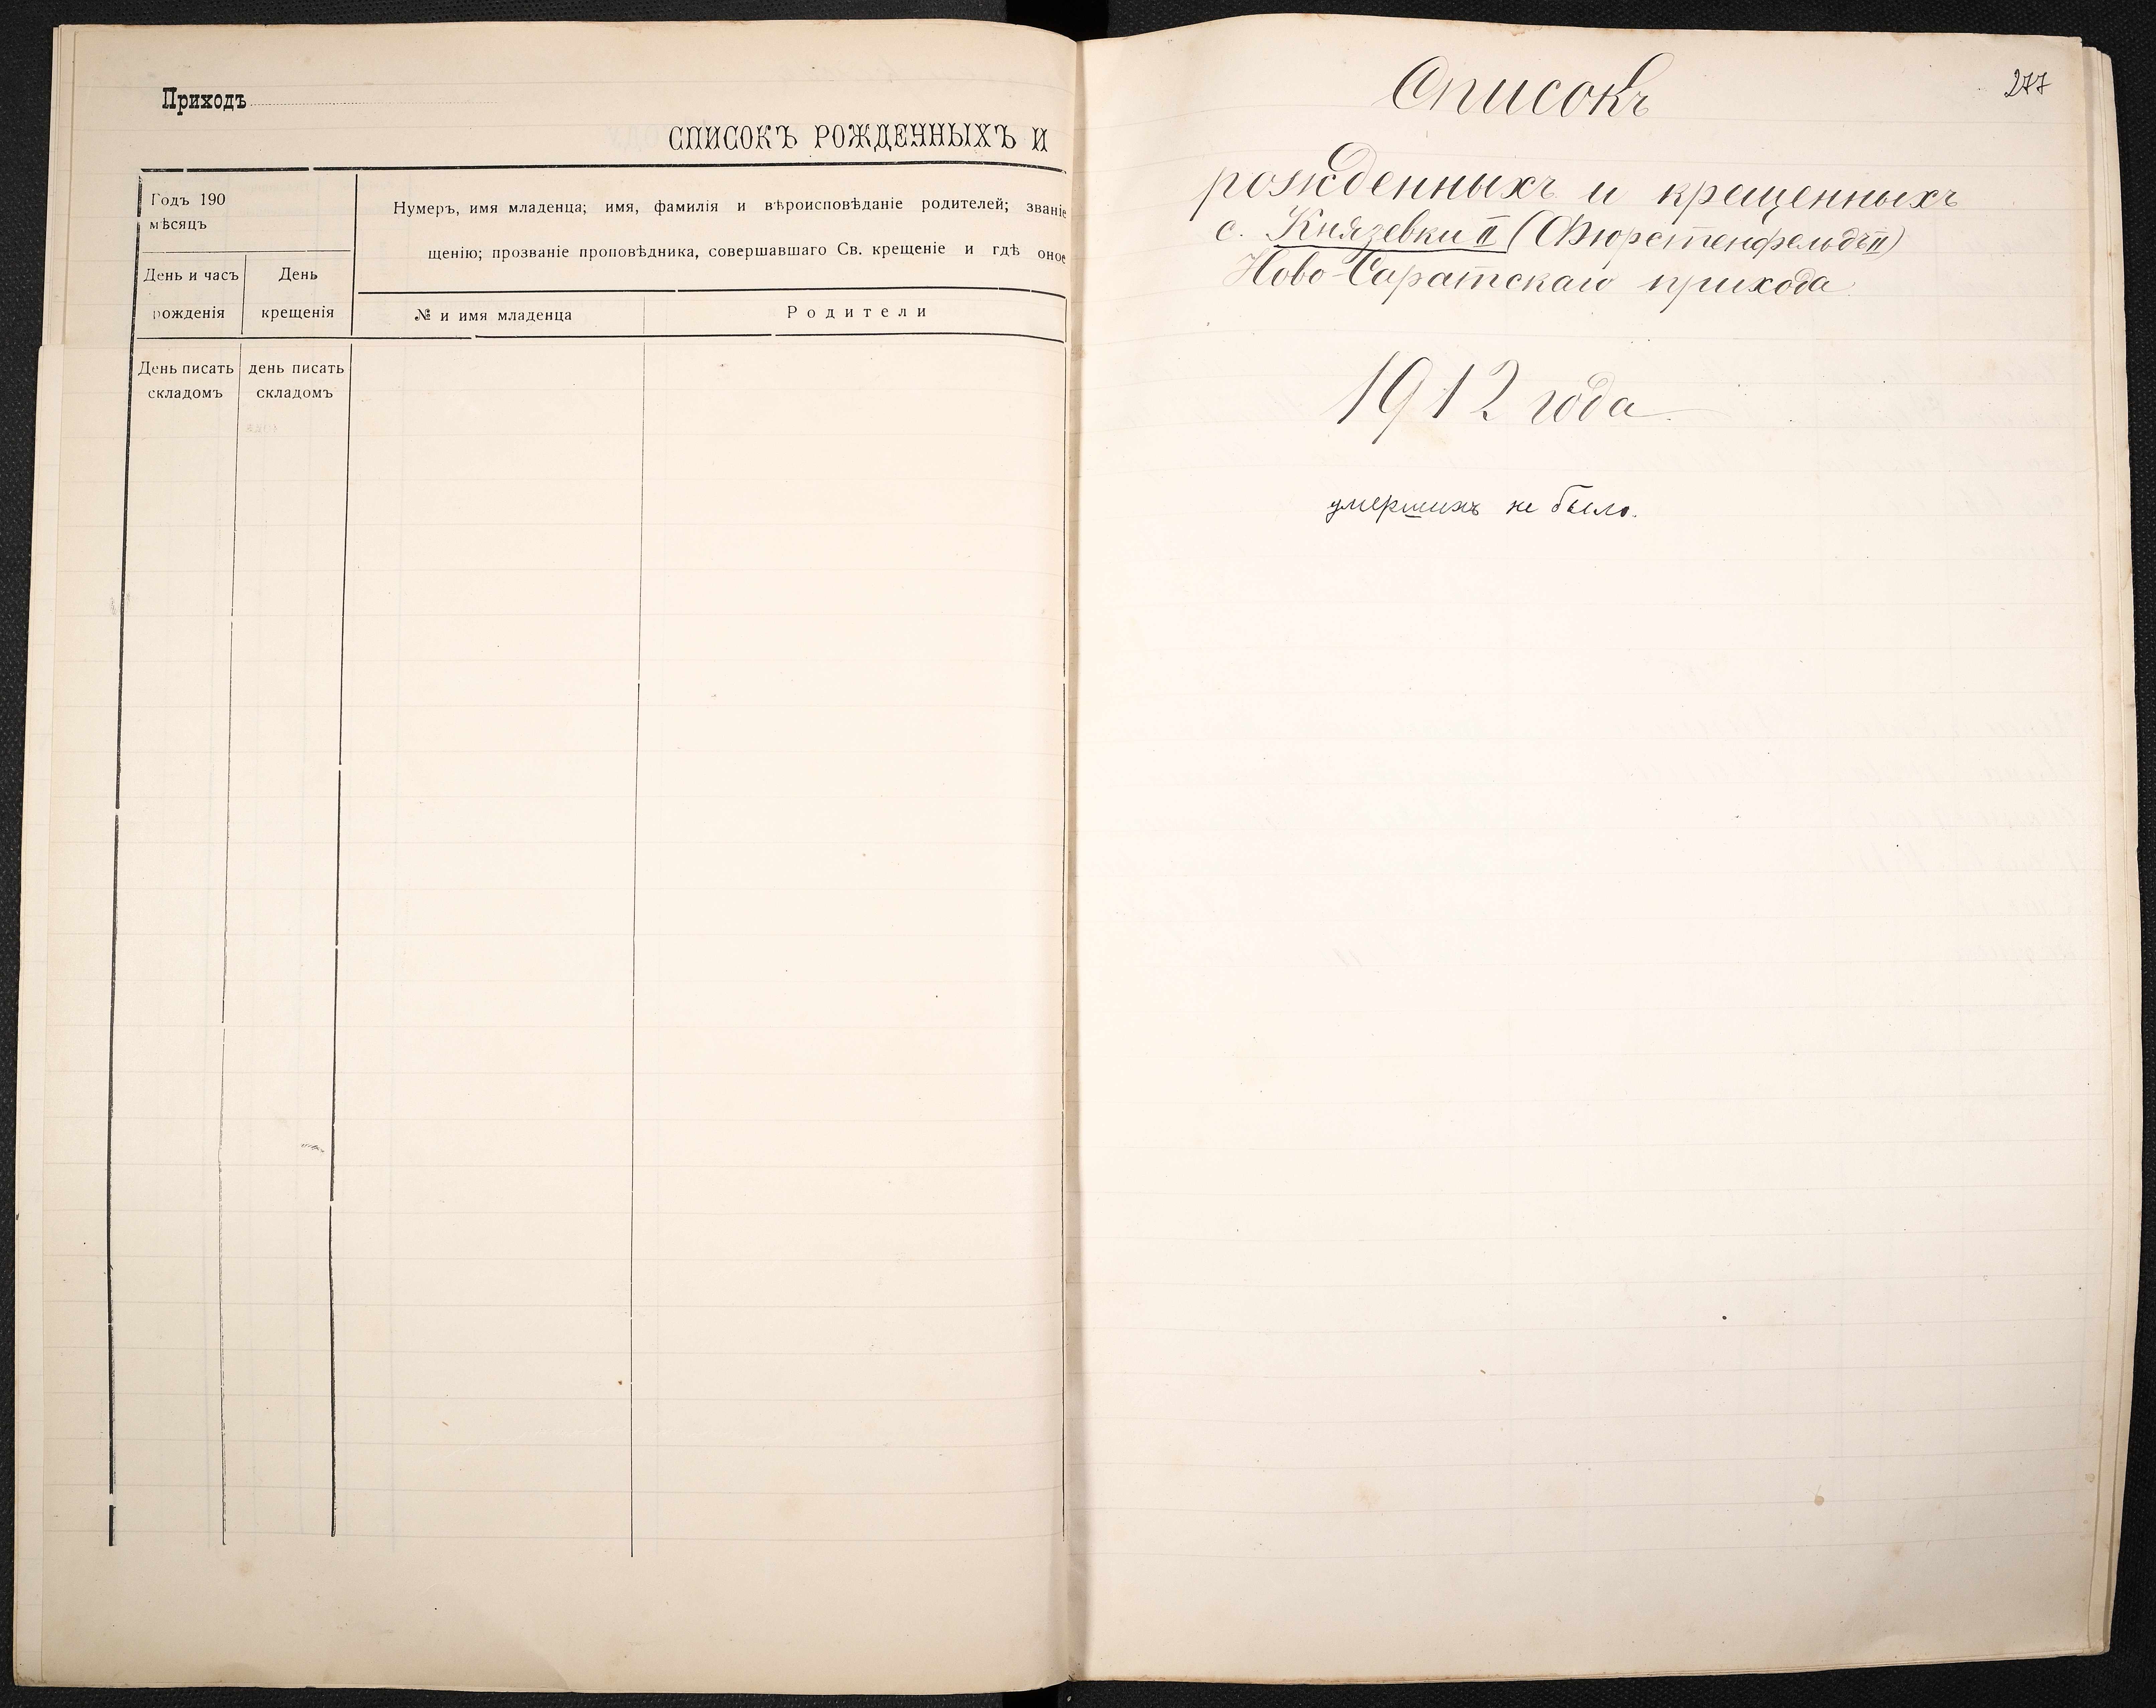 Приходъ
СПИСОКЪ РОЖДЕННЫХЪ И
Годъ 190
мѣсяцъ
Нумеръ, имя младенца; имя, фамилія и вѣроисповѣданіе родителей; званіе
щенію; прозваніе проповѣдника, совершавшаго Св. крещеніе и гдѣ оное
День и часъ
рожденія
День
крещенія
№ и имя младенца
Родители
День писать
складомъ
день писать
складомъ
277
Списокъ
рожденныхъ и крещенныхъ
с. Князевки II (Фюрстенфельдъ II)
Ново-Саратскаго прихода.
1912 года
умершихъ не было.